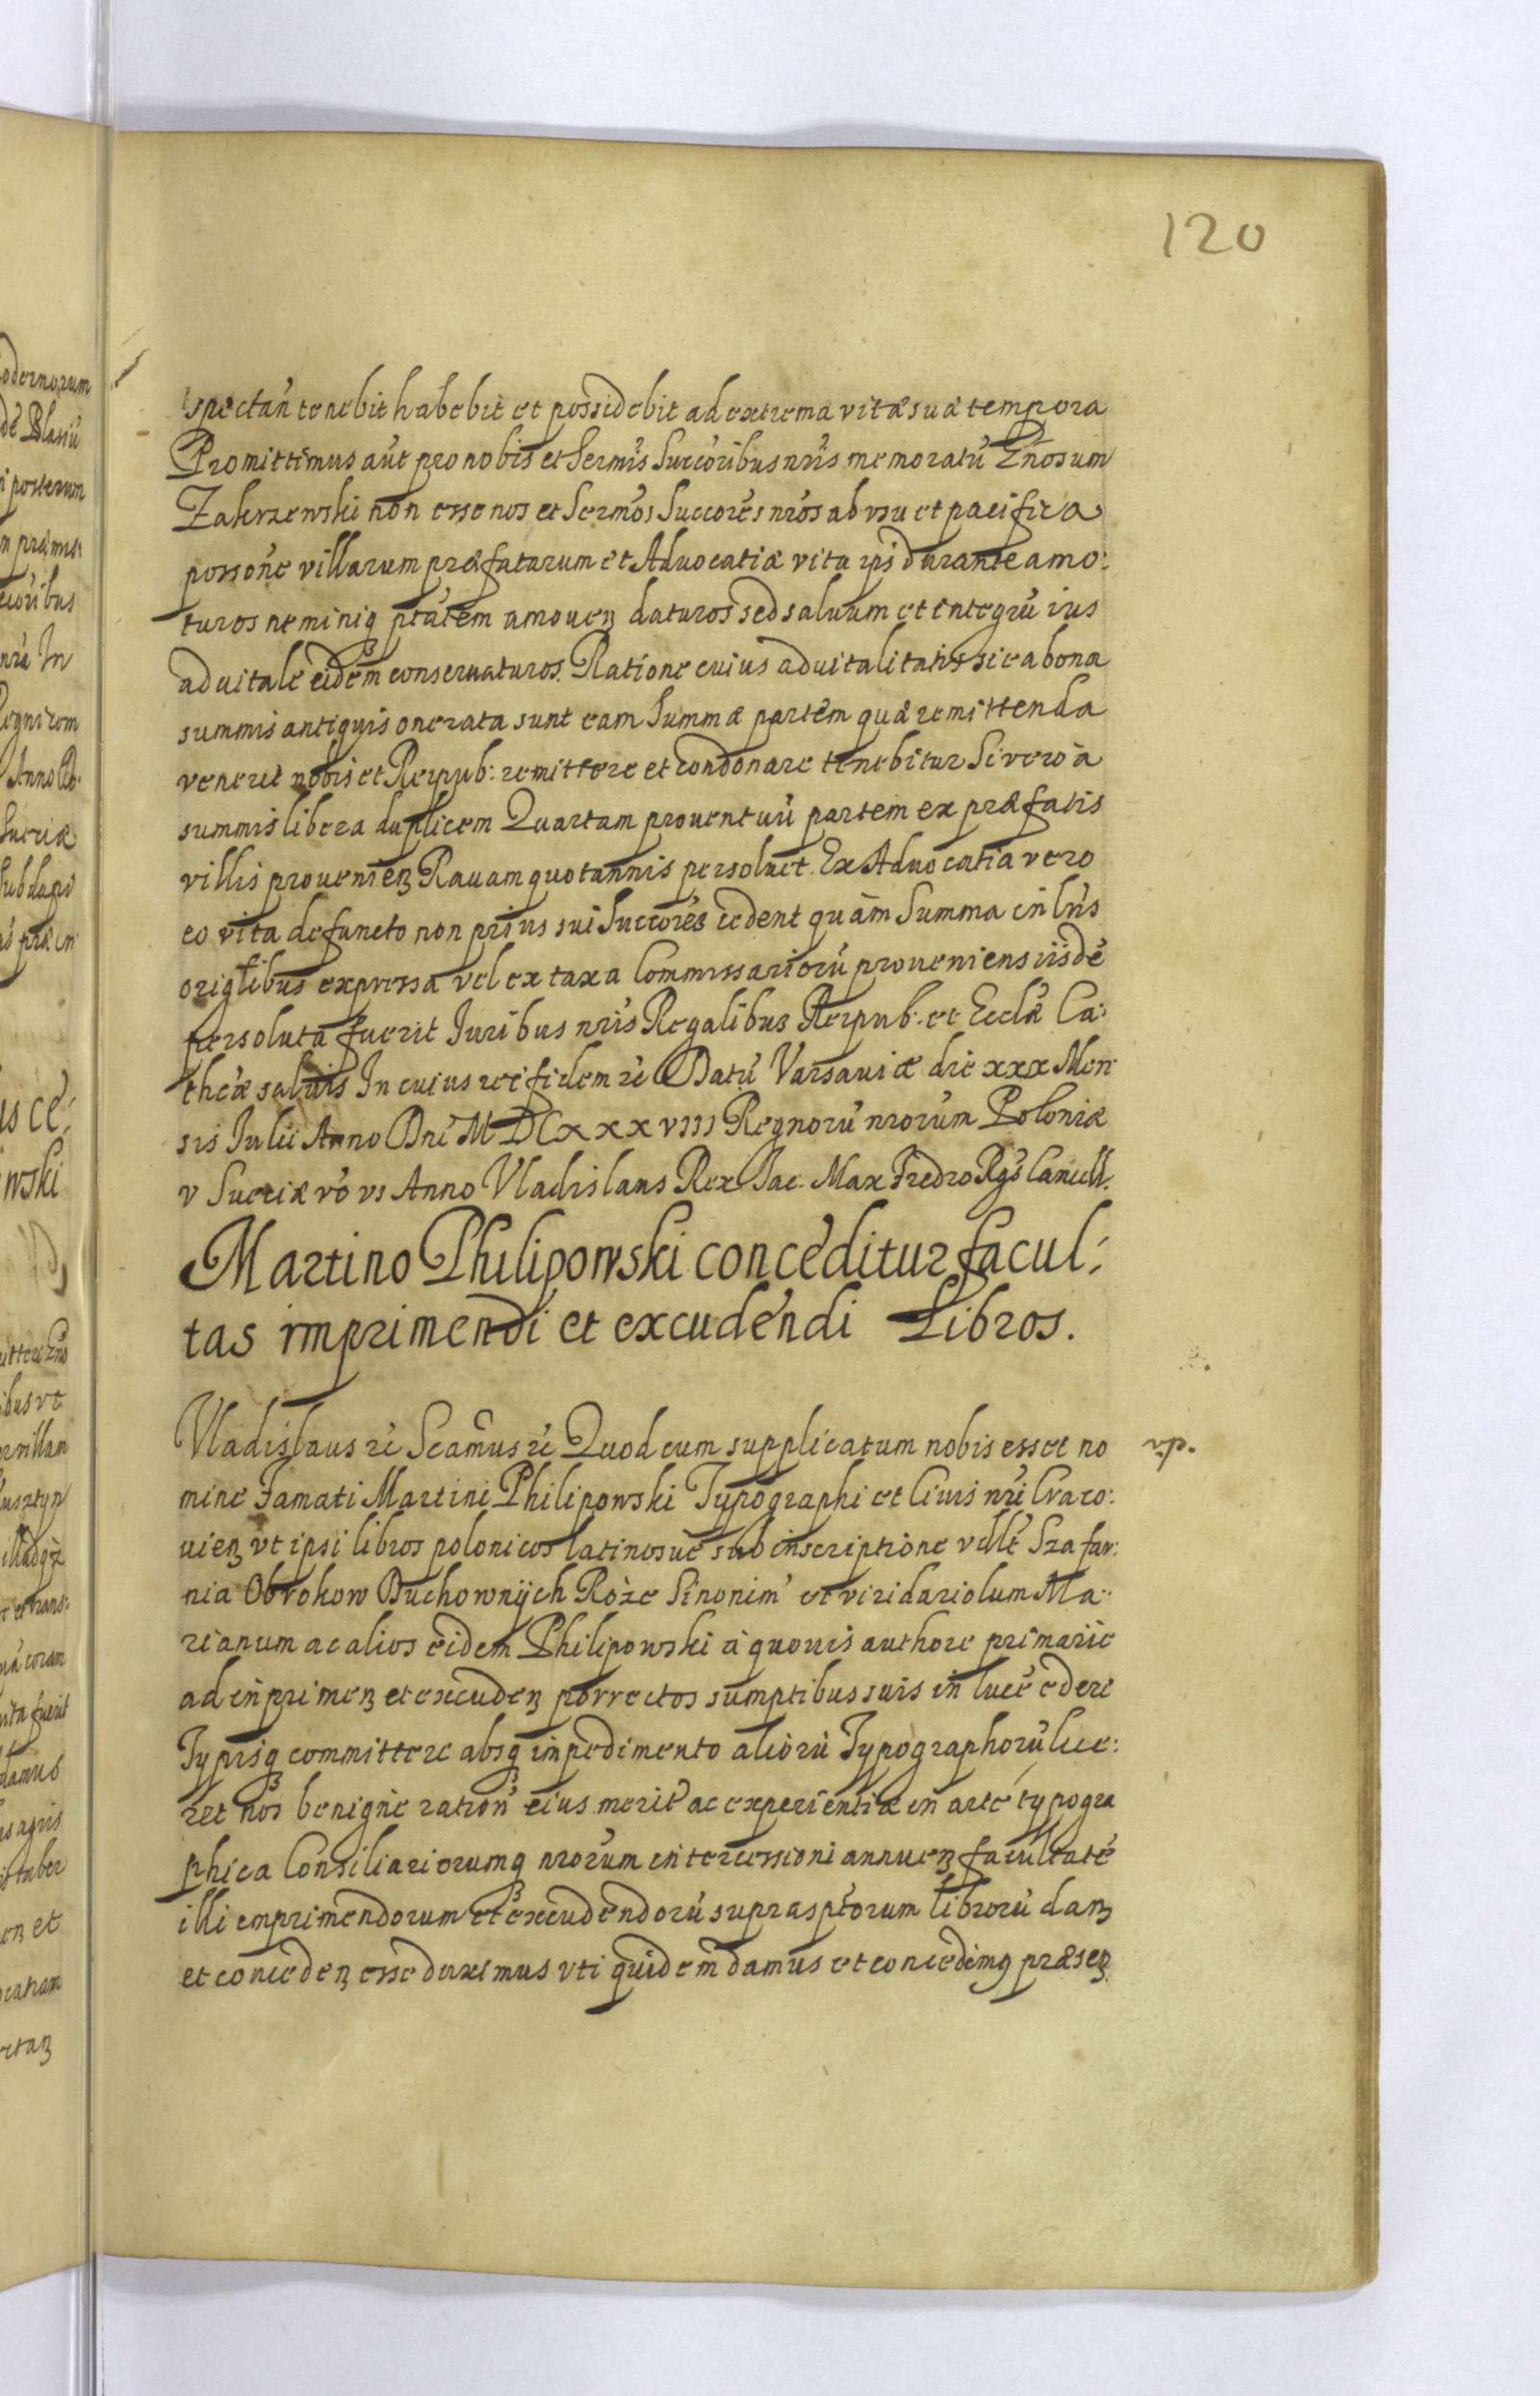 120
spectan̄ tenebit habebit et possidebit ad extrema vitæ suæ tempora
Promittimus aūt pro nobis et Sermis Succoribus nris memoratū Gnosum
Zakrzewski non esse nos et Sermos Succores nros ab vsu et pacifica
possone villarum præfatarum et Aduocatiæ vita ipsi durante amo:
turos neminiq ptatem amouen daturos sed saluum et integrū ius
aduitale eidem conseruaturos. Ratione cuius aduitalitatis si ea bona
summis antiquis onerata sunt eam Summæ partem quæ remittenda
venerit nobis et Reipub: remittere et condonare tenebitur Si vero à
summis libera duplicem Quartam prouentuū partem ex præfatis
villis prouenien Rauam quotannis persoluet. Ex Aduocatia vero
eo vita defuncto non prius sui Succores cedent quàm Summa in lris
originlibus expressa vel ex taxa Commissariorū proueniens iisdē
persoluta fuerit Juribus nris Regalibus Reipub. et Ecclæ Ca:
thcæ saluis In cuius rei fidem rc Datū Varsauiæ die xxx Men
sis Julii Anno Dni MDCxxxviii Regnorū nrorum Poloniæ
v Sueciæ vo vi Anno Vladislaus Rex Jac. Max Fredro Rgs Cancell.
Martino Philipowski conceditur facul:
tas imprimendi et excudendi Libros.
Vladislaus rc Scamus rc Quod cum supplicatum nobis esset no
vp.
mine Famati Martini Philipowski Typographi et Ciuis nri Craco:
uien vt ipsi libros polonicos latinosue sub inscriptione vdlt Szafar:
nia Obrokow Duchownÿch Róże Sinonim et viridariolum Ma:
rianum ac alios eidem Philipowski à quouis authore primarie
ad inprimen et excuden porrectos sumptibus suis in lucē edere
Typisq committere absq inpedimento aliorū Typographorū lice:
ret nos benigne ration eius merit ac experientiæ in arte typogra
phica Consiliariorumq nrorum intercessioni annuen facultatē
illi imprimendorum et excudendorū suprasptorum librorū dan
et conceden esse duximus vti quidem damus et concedimq præsen